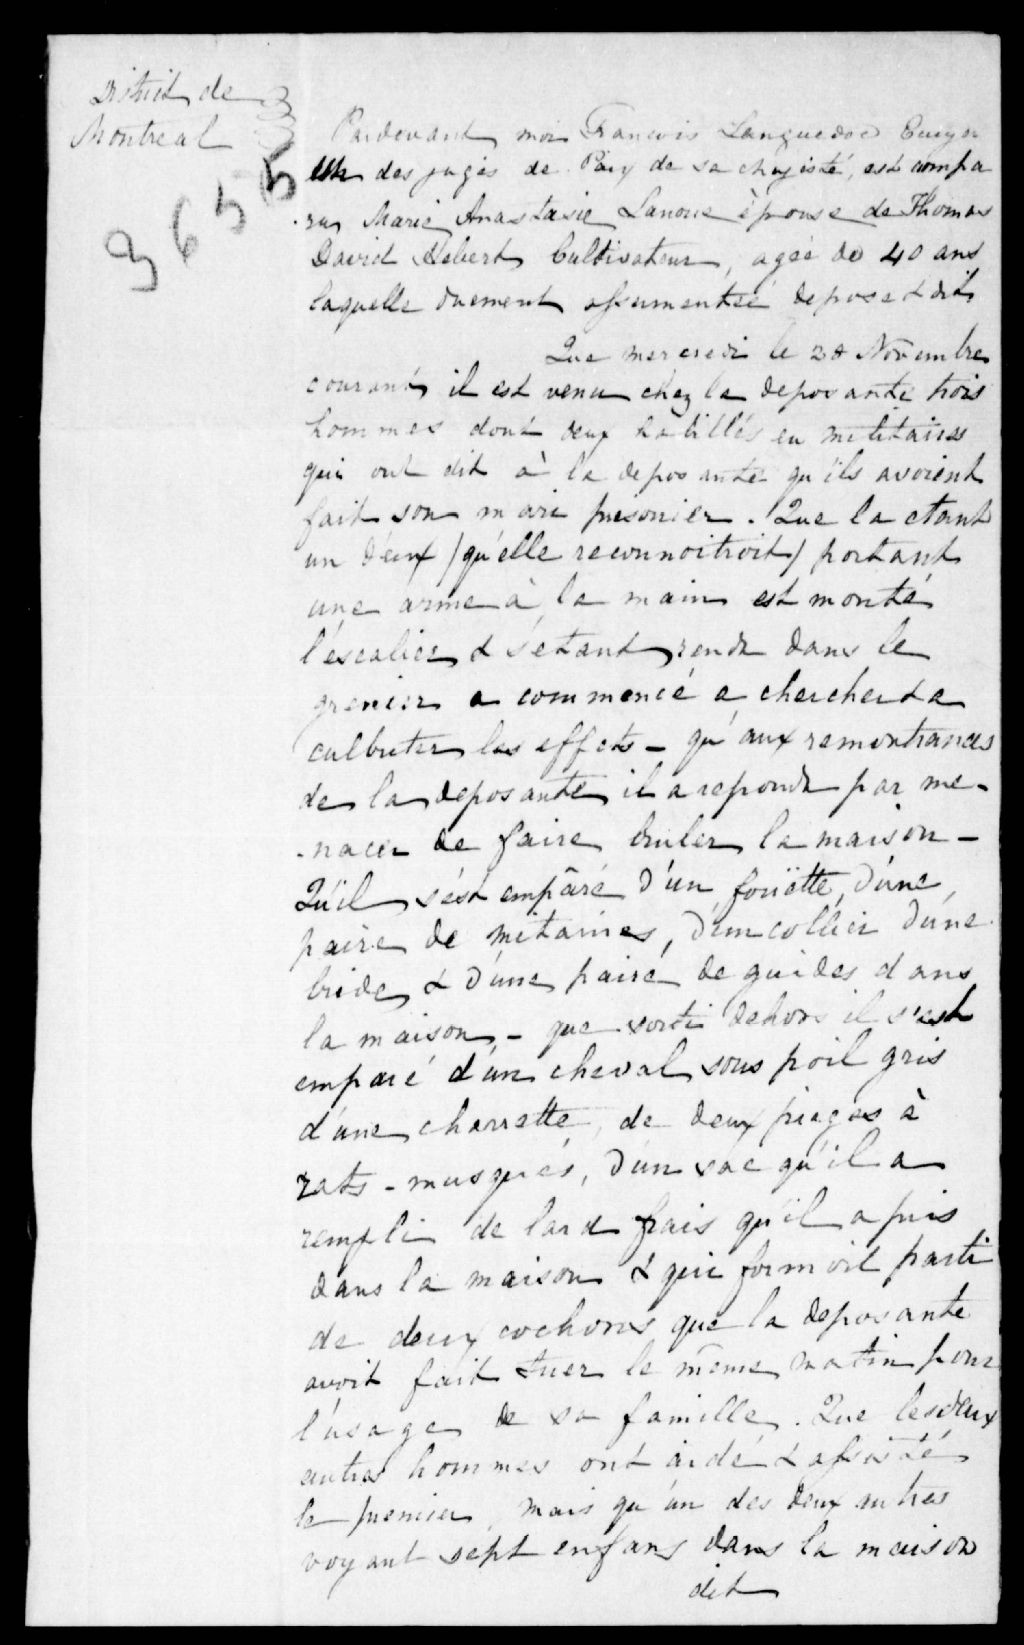 District de
Montreal
3655
Pardevant moi Francois Languedoc Ecuyer
Un des juges de Paix de sa majesté, est compa
ru Marie Anastasie Lanoue épouse de Thomas
David Hebert Cultivateur, agée de 40 ans
laquelle duement assermentée depose & dit
Que mercredi le 28 Novembre
courant il est venu chez la deposante trois
hommes dont deux habillés en militaires
qui ont dit à la deposante qu'ils avoient
fait son mari prisonier. Que la etant
un d'eux (qu'elle reconnoitroit) portant
une arme à la main est monté
l'éscalier & s'etant rendu dans le
grenier a commencé a chercher & a
culbuter les effets - qu'aux remontrances
de la deposante il a repondu par me-
-nacer de faire bruler la maison -
Qu'il s'ést emparé d'un fouëtte, d'une
paire de mitaines, d'un collier d'une
bride, & d'une paire de guides dans
la maison, - que sorti dehors il s'est
emparé d'un cheval sous poil gris
d'une charrette, de deux pieges à
rats-musqués, d'un sac qu'il a
rempli de lard frais qu'il a pris
dans la maison & qui formoit parti
de deux cochons que la deposante
avoit fait tuer le même matin pour
l'usage de sa famille. Que les deux
autres hommes ont aidé & assisté
le premier, mais qu'un des deux autres
voyant sept enfans dans la maison
dit